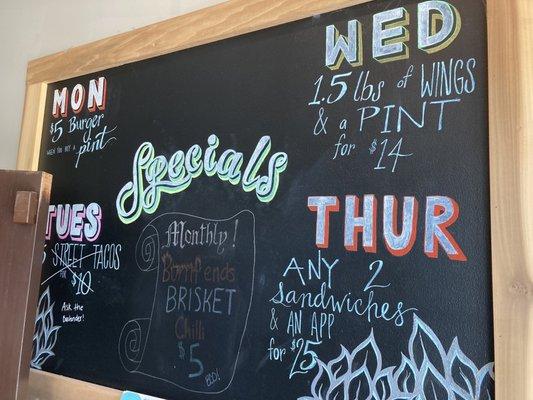 MON
$5 Burger
WHEN YOU BUY A
pint
TUES
STREET TACOS
for $10
Ask the
Bartender!
Specials
Monthly!
Burnt ends
BRISKET
Chili
$5
WED
1.5 lbs of WINGS
& a PINT
for $14
THUR
ANY 2
Sandwiches
& AN APP
for $25